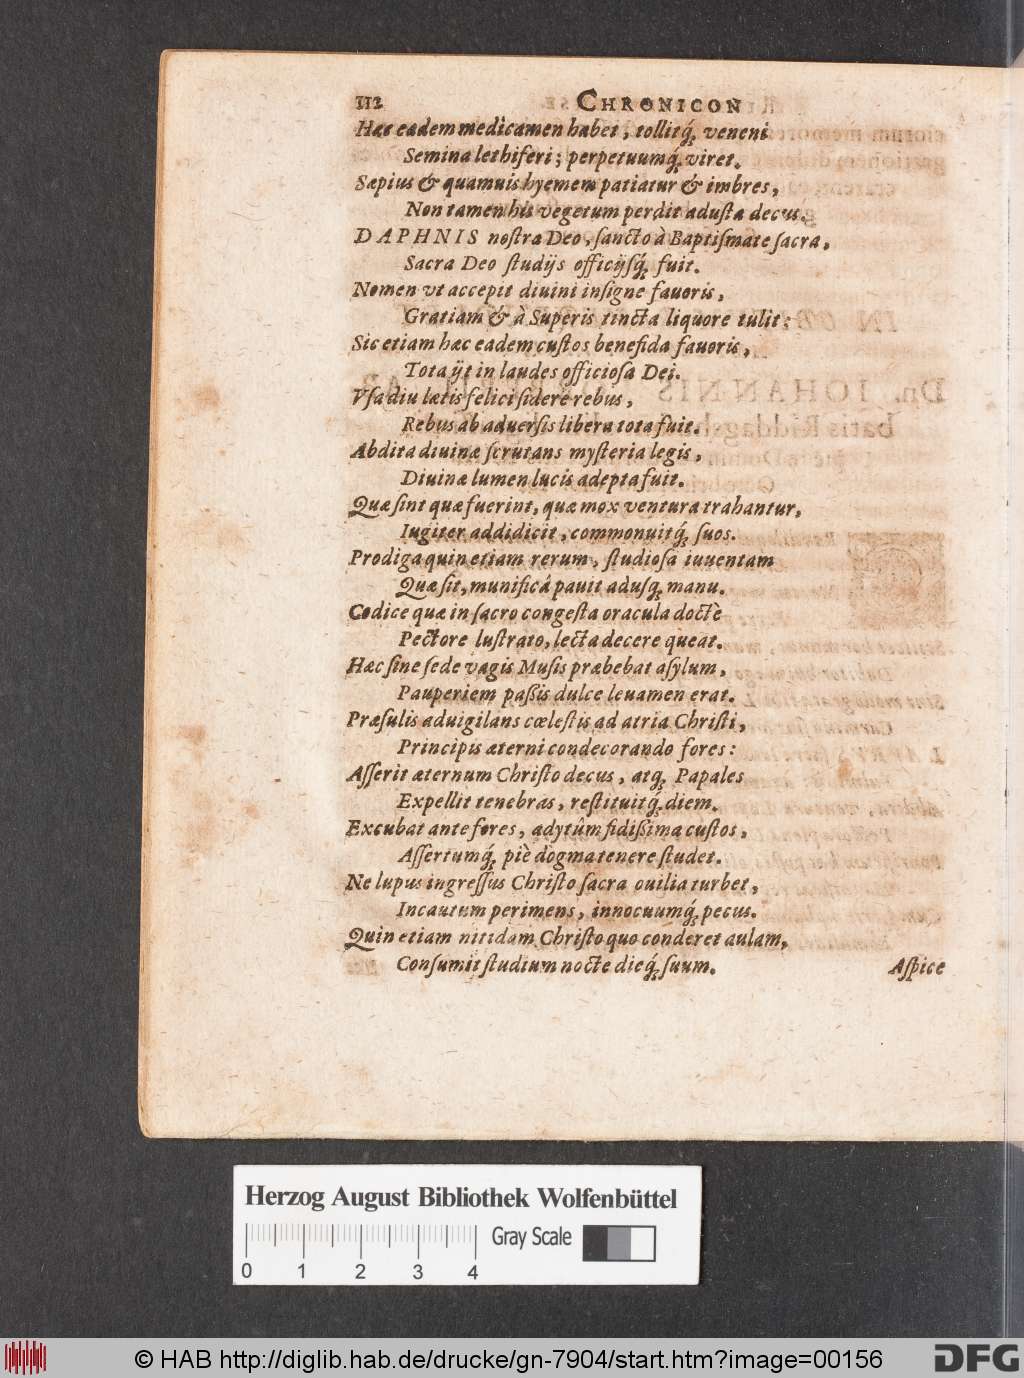 112 CHRONICON
Hæc eadem medicamen habet, tollitq́; veneni
Semina lethiferi; perpetuumq́; viret.
Sæpius & quamuis hyemem patiatur & imbres,
Non tamen his vegetum perdit adusta decus.
DAPHNIS nostra Deo, sancto à Baptismate sacra,
Sacra Deo studijs officijsq́; fuit.
Nomen vt accepit diuini insigne fauoris,
Gratiam & à Superis tincta liquore tulit:
Sic etiam hæc eadem custos benefida fauoris,
Tota ijt in laudes officiosa Dei.
Vsa diu lætis felici sidere rebus,
Rebus ab aduersis libera tota fuit.
Abdita diuinæ scrutans mysteria legis,
Diuinæ lumen lucis adepta fuit.
Quæ sint quæ fuerint, quæ mox ventura trahantur,
Iugiter addidicit, commonuitq́; suos.
Prodiga quin etiam rerum, studiosa iuuentam
Quæ sit, munificâ pauit adusq; manu.
Codice quæ in sacro congesta oracula doctè
Pectore lustrato, lecta decere queat.
Hæc sine sede vagis Musis præbebat asylum,
Pauperiem passis dulce leuamen erat.
Præsulis aduigilans cœlestis ad atria Christi,
Principis æterni condecorando fores:
Asserit æternum Christo decus, atq; Papales
Expellit tenebras, restituitq́; diem.
Excubat ante fores, adytûm fidissima custos,
Assertumq́; piè dogma tenere studet.
Ne lupus ingressus Christo sacra ouilia turbet,
Incautum perimens, innocuumq́; pecus.
Quin etiam nitidam Christo quo conderet aulam,
Consumit studium nocte dieq́; suum. Aspice
Herzog August Bibliothek Wolfenbüttel
Gray Scale
0 1 2 3 4
© HAB http://diglib.hab.de/drucke/gn-7904/start.htm?image=00156
DFG